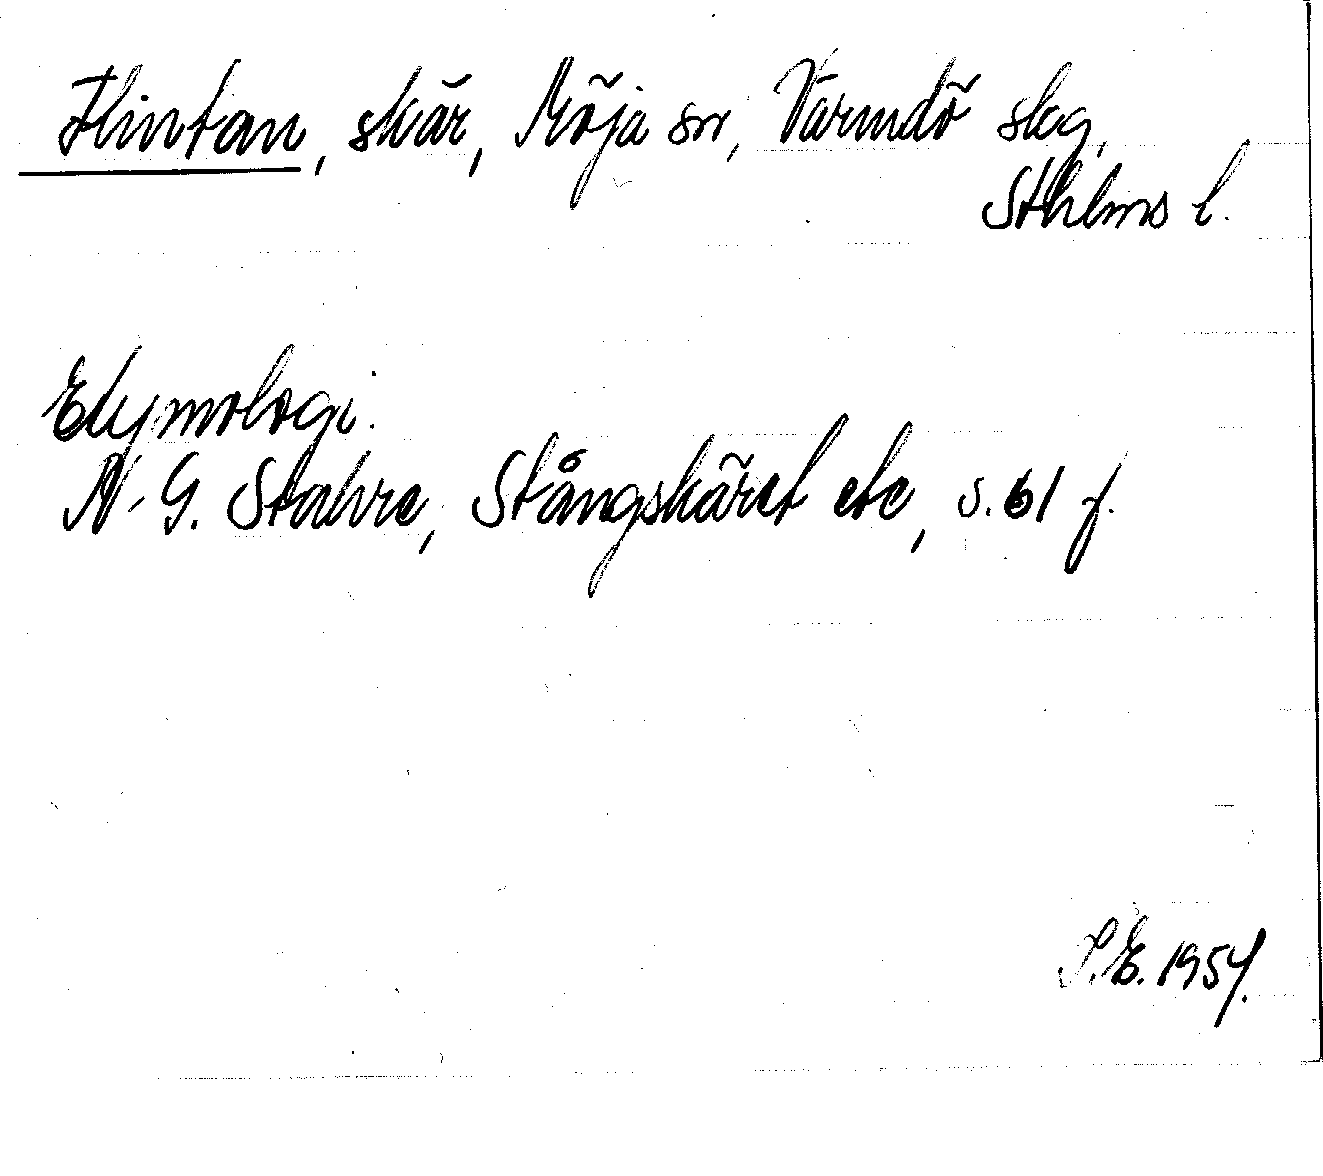 Flintan, skär, Möja sn, Värmdö skg,
Sthlms l.
Etymologi.
N.-G. Stahre, Stångskäret etc, s. 61 f.
S.E. 1954.